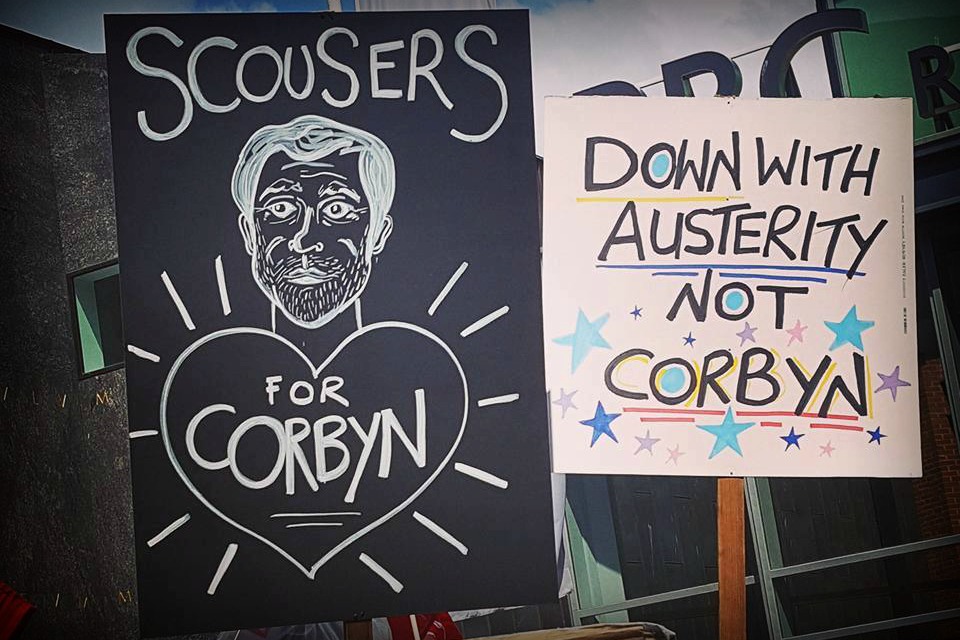 SCOUSERS
FOR
CORBYN
DOWN WITH
AUSTERITY
NOT
CORBYN